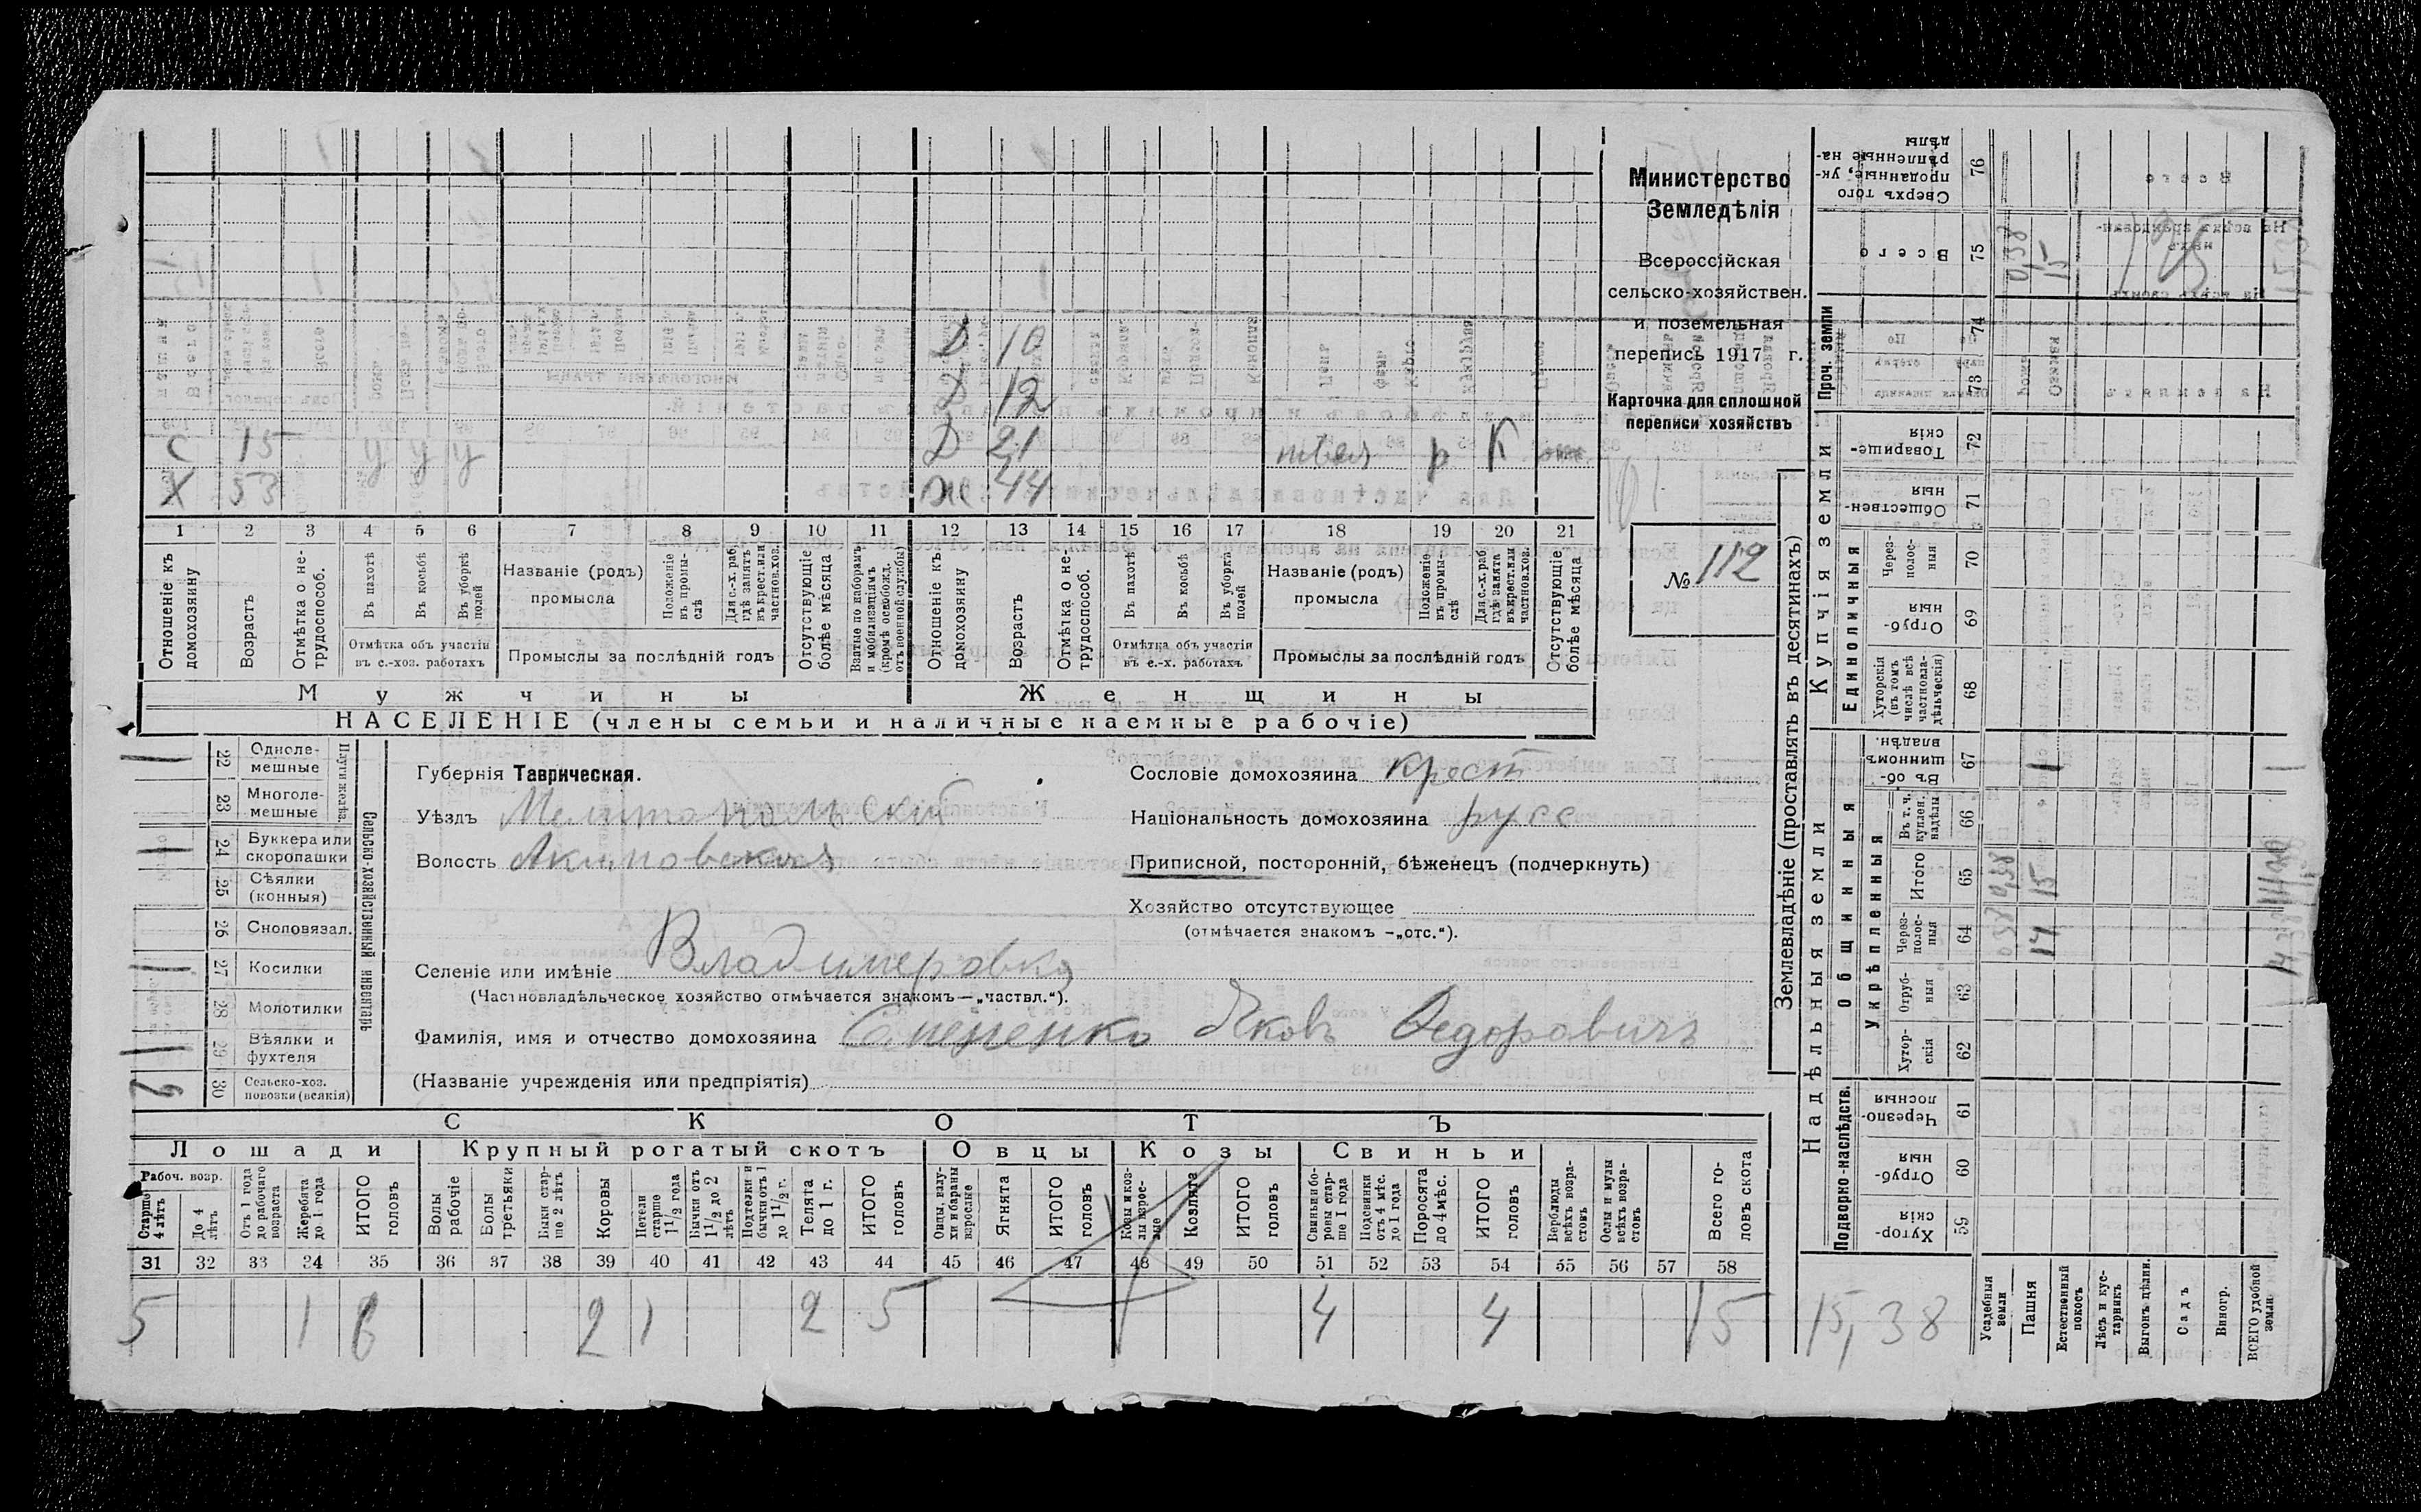 Министерство
Земледѣлія
Всероссійская
сельско-хозяйствен.
и поземельная
перепись 1917 г.
Карточка для сплошной
переписи хозяйствъ
№ 112
Д 10
Д 12
С 15 у у у Д 21 р К
Х 53 у у у Ж 44
1 2 3 4 5 6 7 8 9 10 11 12 13 14 15 16 17 18 19 20 21
Отношеніе къ домохозяину
Возрастъ
Отмѣтка о не-трудоспособ.
Въ пахотѣ
Въ косьбѣ
Въ уборкѣ полей
Отмѣтка объ участіи
въ с.-хоз. работахъ
Названіе (родъ)
промысла
Положеніе въ промы-слѣ
Для с.-х. раб. гдѣ занятъ въ крест. или частнов. хоз.
Промыслы за послѣдній годъ
Отсутствующіе болѣе мѣсяца
Взятые по наборамъ и мобилизаціямъ (кромѣ освобожд. отъ военной службы)
Отношеніе къ домохозяину
Возрастъ
Отмѣтка о не-трудоспособ.
Въ пахотѣ
Въ косьбѣ
Въ уборкѣ полей
Отмѣтка объ участіи
въ с.-х. работахъ
Названіе (родъ)
промысла
Положеніе въ промы-слѣ
Для с.-х. раб. гдѣ занята въ крест. или частнов. хоз.
Промыслы за послѣдній годъ
Отсутствующіе болѣе мѣсяца
Мужчины Женщины
НАСЕЛЕНІЕ (члены семьи и наличные наемные рабочіе)
Сельско-хозяйственный инвентарь
Плуги желѣзн.
22 Одноле-мешные
23 Многоле-мешные
24 Буккера или скоропашки
25 Сѣялки (конныя)
26 Сноповязал.
27 Косилки
28 Молотилки
29 Вѣялки и фухтеля
30 Сельско-хоз. повозки (всякія)
Губернія Таврическая.
Уѣздъ Мелитопольскій
Волость Акимовская
Селеніе или имѣніе Владимеровка
(Частновладѣльческое хозяйство отмѣчается знакомъ—„частвл.“).
Сословіе домохозяина крест
Національность домохозяина русс
Приписной, посторонній, бѣженецъ (подчеркнуть)
Хозяйство отсутствующее
(отмѣчается знакомъ -„отс.“).
Фамилія, имя и отчество домохозяина Яковъ Федоровичъ
(Названіе учрежденія или предпріятія)
СКОТЪ
Лошади Крупный рогатый скотъ Овцы Козы Свиньи
Рабоч. возр.
Старше 4 лѣтъ
До 4 лѣтъ
Отъ 1 года до рабочаго возраста
Жеребята до 1 года
ИТОГО головъ
Волы рабочіе
Волы третьяки
Быки стар-ше 2 лѣтъ
Коровы
Нетели старше 1 1/2 года
Бычки отъ 1 1/2 до 2 лѣтъ
Подтелки и бычки отъ 1 до 1 1/2 г.
Телята до 1 г.
ИТОГО головъ
Овцы, валу-хи и бараны взрослые
Ягнята
ИТОГО головъ
Козы и коз-лы взрос-лые
Козлята
ИТОГО головъ
Свиньи и бо-ровы стар-ше 1 года
Подсвинки отъ 4 мѣс. до 1 года
Поросята до 4 мѣс.
ИТОГО головъ
Верблюды всѣхъ возра-стовъ
Ослы и мулы всѣхъ возра-стовъ
Всего го-ловъ скота
31 32 33 34 35 36 37 38 39 40 41 42 43 44 45 46 47 48 49 50 51 52 53 54 55 56 57 58
5 1 6 2 1 2 5 4 4 15
15,38
Землевладѣніе (проставлять въ десятинахъ)
Надѣльныя земли
Купчія земли
Проч. земли
Подворно-наслѣдств.
Общинныя
Укрѣпленныя
Единоличныя
Хутор-скія 59
Отруб-ныя 60
Черезпо-лосныя 61
Хутор-скія 62
Отруб-ныя 63
Через-полос-ныя 64
Итого 65
Въ т. ч. куплен. надѣлы 66
Въ об-щинномъ владѣн. 67
Хуторскія (въ томъ числѣ всѣ частновла-дѣльческія) 68
Отруб-ныя 69
Через-полос-ныя 70
Обществен-ныя 71
Товарище-скія 72
73
74
Всего 75
Сверхъ того проданные, ук-рѣпленные на-дѣлы 76
Усадебныя земли
Пашня
Естественный покосъ
Лѣсъ и кус-тарникъ
Выгонъ цѣлин.
Садъ
Виногр.
ВСЕГО удобной земли
0,38 0,38 0,38
14 15 1 15